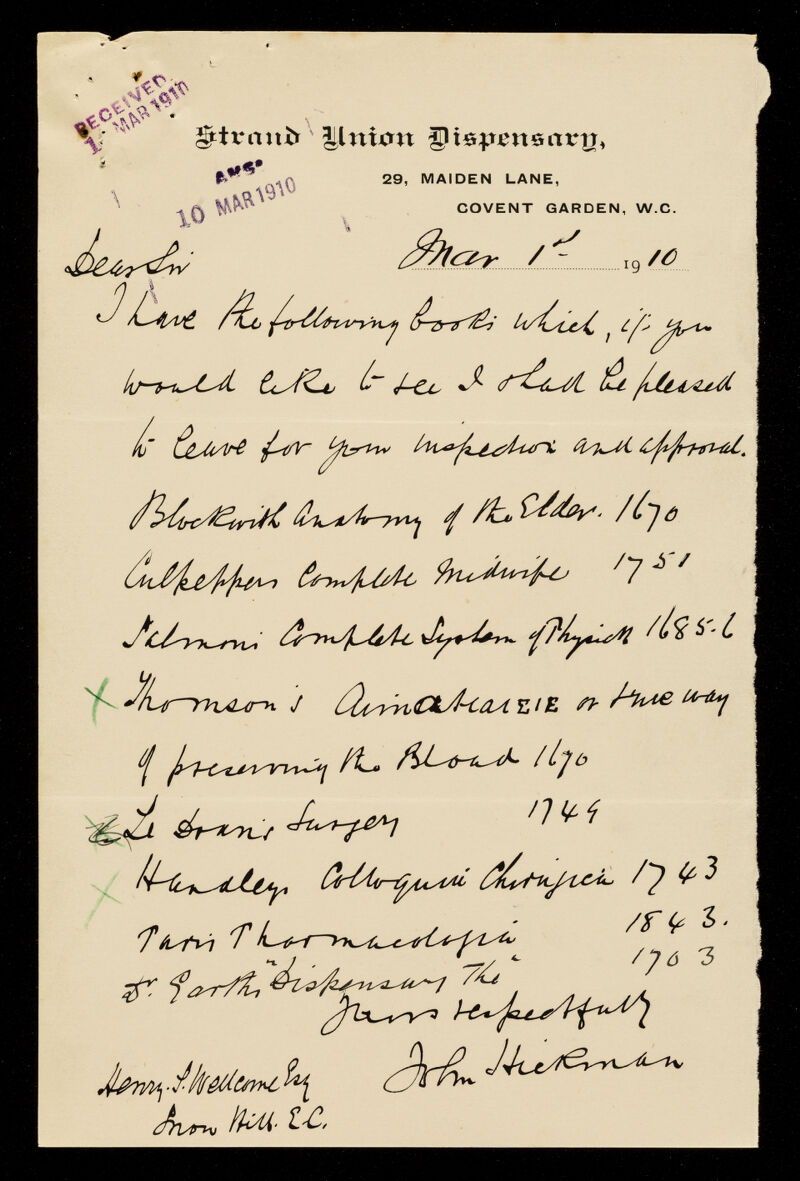 RECEIVED
1 MAR 1910
Strand Union Dispensary,
ANS.
10 MAR 1910
29, MAIDEN LANE,
COVENT GARDEN, W.C.
Mar 1st 1910
Dear Sir
I have the following books which, if you
would like to see I shall be pleased
to leave for your inspection and approval.
Blockwith Anatomy of the Elder. 1670
Culpeppers Complete Midwife 1751
Salmons Complete System of Physick 1685-6
Thomson's or true way
of preserving the Bloud 1670
Le Dran's Surgery 1749
Handleys Colloquia Chirurgica 1743
Paris Pharmacologia 1843.
Dr. Garth's "Dispensary The" 1703
Yours respectfully
John Hickman
Henry. S. Wellcome Esq
Snow Hill. E.C.